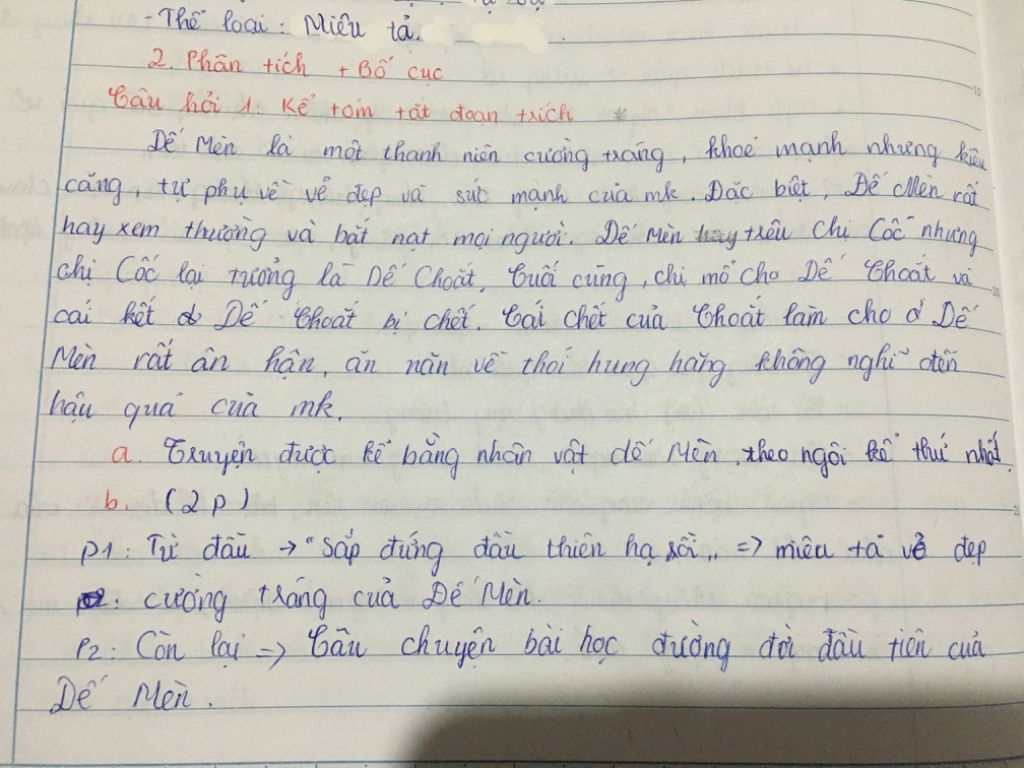 - Thể loại: Miêu tả.
2. Phân tích + Bố cục
Câu hỏi 1: Kể tóm tắt đoạn trích
Dế Mèn là một thanh niên cường tráng, khoẻ mạnh nhưng kiêu
căng, tự phụ về vẻ đẹp và sức mạnh của mk. Đặc biệt, Dế Mèn rất
hay xem thường và bắt nạt mọi người. Dế Mèn hay trêu chị Cốc nhưng
chị Cốc lại tưởng là Dế Choắt. Cuối cùng, chị mổ cho Dế Choắt và
cái kết Dế Choắt bị chết. Cái chết của Choắt làm cho Dế
Mèn rất ân hận, ăn năn về thói hung hăng không nghĩ đến
hậu quả của mk.
a. Truyện được kể bằng nhân vật dế Mèn, theo ngôi kể thứ nhất.
b. (2 p)
p1: Từ đầu → "Sắp đứng đầu thiên hạ rồi" => miêu tả vẻ đẹp
cường tráng của Dế Mèn.
P2: Còn lại => Câu chuyện bài học đường đời đầu tiên của
Dế Mèn.